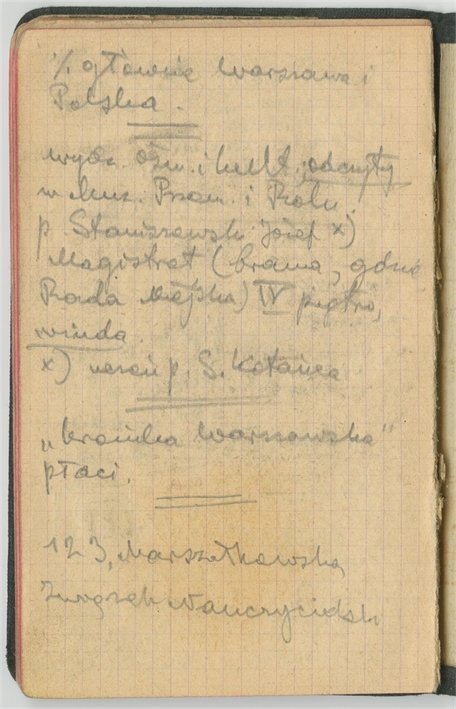 ·/. głównie Warszawa i
Polska.
wydz. ośw. i kult. odczyty
w Muz. Przem. i Roln.
p. Staniszewski Józef x)
Magistrat (brama, gdzie
Rada Miejska) IV piętro,
winda.
x) p. S. Kotańca
„Kronika Warszawska"
płaci.
123, Marszałkowska
Związek Nauczycielski